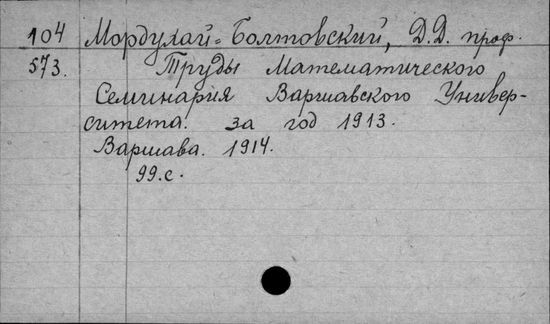 104 Мордулай-Болтовский, Д.Д. проф.
573. Труды Математического
Семинария Варшавского Универ-
ситета. за год 1913.
Варшава. 1914.
99.с.